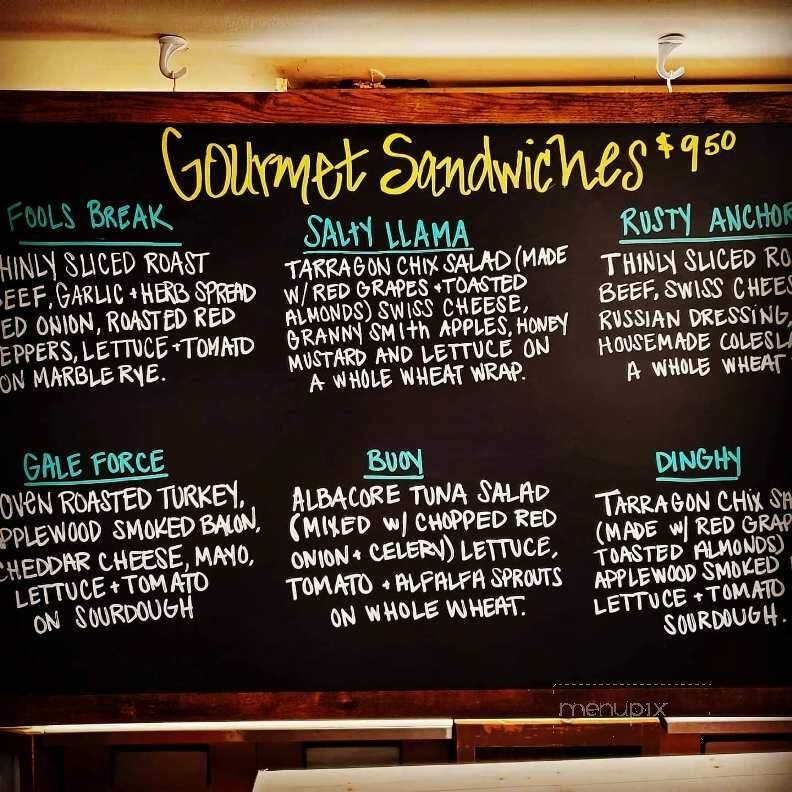 Gourmet Sandwiches $9.50
FOOLS BREAK
HINLY SLICED ROAST
EEF, GARLIC + HERB SPREAD
ED ONION, ROASTED RED
EPPERS, LETTUCE + TOMATO
ON MARBLE RYE.
SALTY LLAMA
TARRAGON CHIX SALAD (MADE
W/ RED GRAPES + TOASTED
ALMONDS) SWISS CHEESE,
GRANNY SMITH APPLES, HONEY
MUSTARD AND LETTUCE ON
A WHOLE WHEAT WRAP.
RUSTY ANCHOR
THINLY SLICED RO
BEEF, SWISS CHEES
RUSSIAN DRESSING,
HOUSEMADE COLESLA
A WHOLE WHEAT
GALE FORCE
OVEN ROASTED TURKEY,
PPLEWOOD SMOKED BACON,
CHEDDAR CHEESE, MAYO,
LETTUCE + TOMATO
ON SOURDOUGH
BUOY
ALBACORE TUNA SALAD
(MIXED W/ CHOPPED RED
ONION + CELERY) LETTUCE,
TOMATO + ALFALFA SPROUTS
ON WHOLE WHEAT.
DINGHY
TARRAGON CHIX SA
(MADE W/ RED GRAP
TOASTED ALMONDS)
APPLEWOOD SMOKED
LETTUCE + TOMATO
SOURDOUGH.
menupix